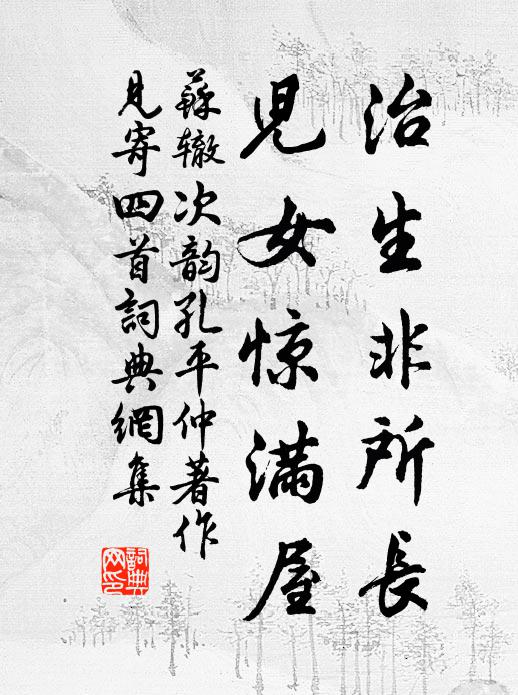 治生非所長
兒女惊滿屋
蘇辙次韵孔平仲著作
見寄四首詞典網集
詞典网印